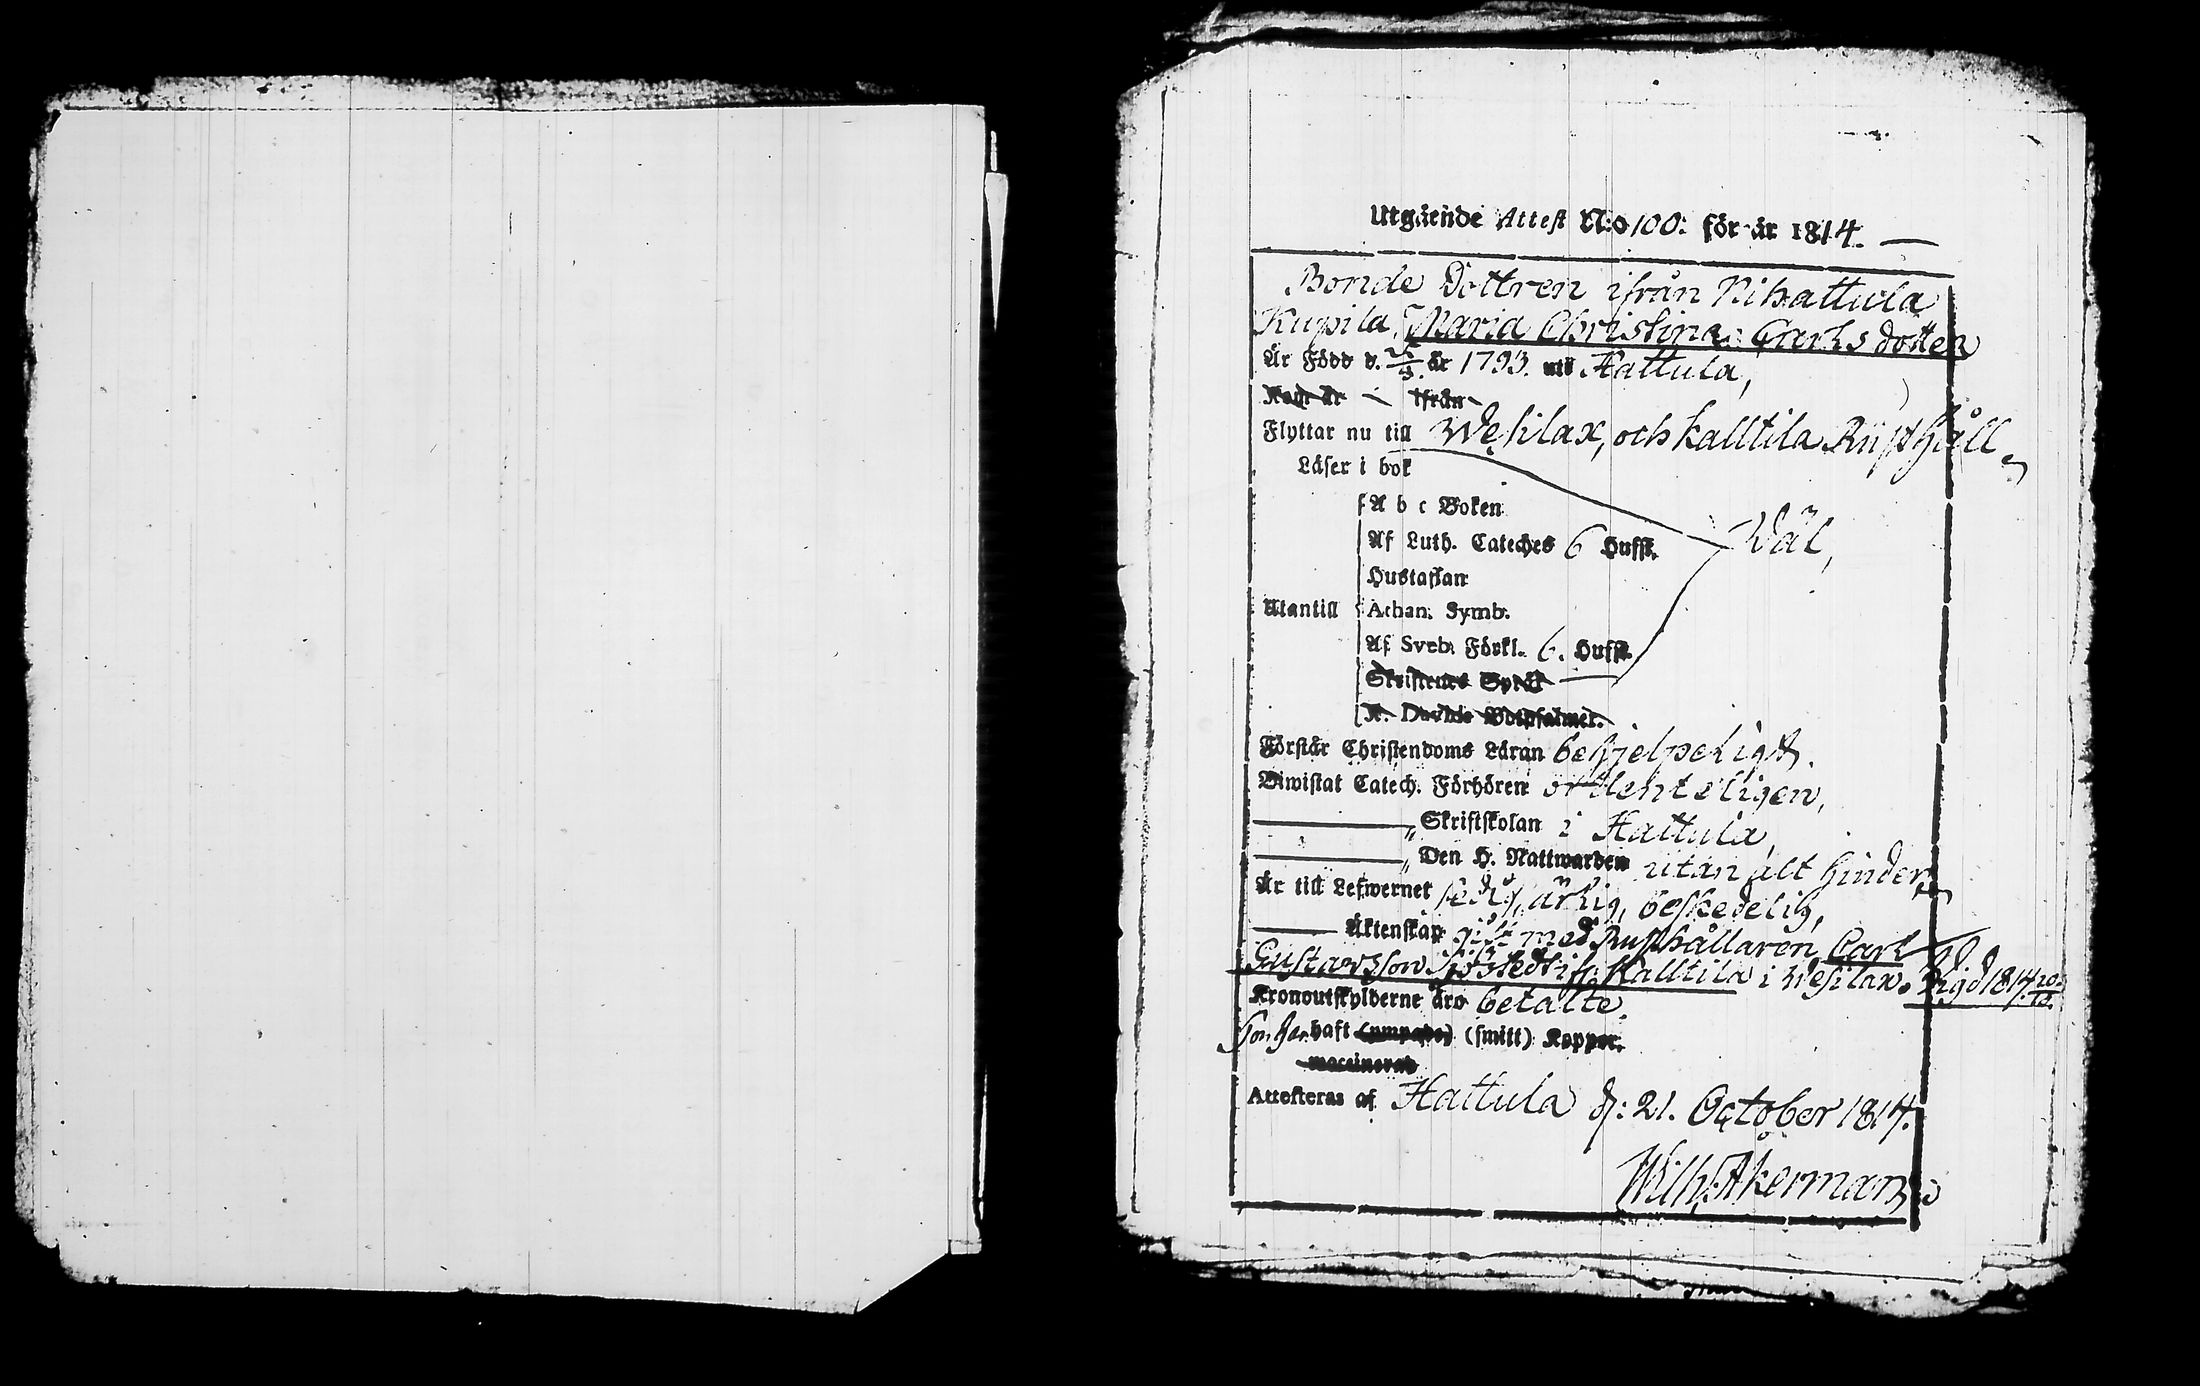 Utgående Attest N:o 100: för år 1814.
Bonde Dottren ifrån Nihattula
Kupila, Maria Christina Carlsdotter
Är Född d. år 1793. uti Hattula,
Kom år ifrån
Flyttar nu till Wesilax, och Kalltila Rusthåll
Läser i bok
A b c Boken
Af Luth. Cateches 6 Hufst. Wäl,
Hustaflan
Utantill Athan. Symb.
Af Sveb. Förkl. 6. Hufst.
Skriftenes Språk
K. Davids Botpsalmer.
Förstår Christendoms Läran behjelpeligt.
Biwistat Catech. Förhören ordenteligen,
„ Skriftskolan i Hattula,
„ Den H. Nattwarden utan alt hinder
Är till Lefwernet sedig, ärlig, beskedelig,
Äktenskap gift med Rusthållaren Carl
Gustavsson Sjöstedt ifr. Kalltila i Wesilax. Vigd 1814 20/12.
Kronoutskylderne äro betalte.
Son har haft (ympade) (smitt) Koppor.
vaccinerad
Attesteras af Hattula d: 21. October 1814.
Wilh: Åkerman